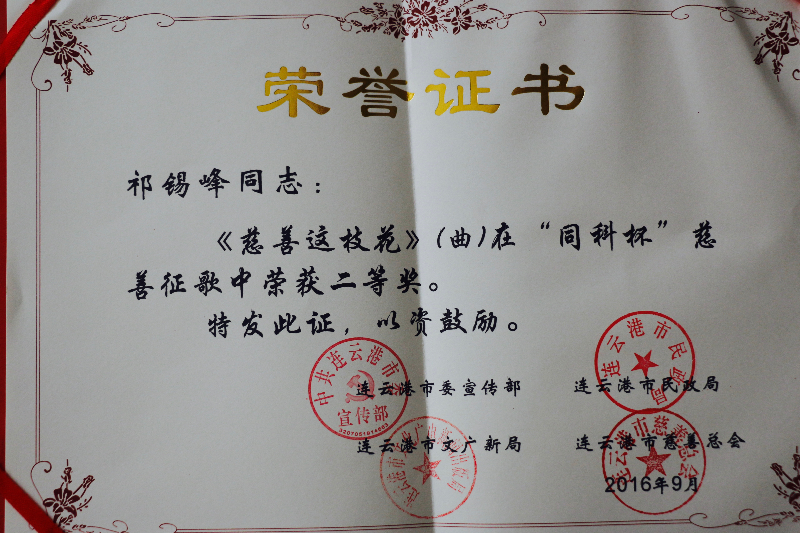 荣誉证书
祁锡峰同志：
《慈善这枝花》(曲)在“同科杯”慈
善征歌中荣获二等奖。
特发此证，以资鼓励。
连云港市委宣传部 连云港市民政局
连云港市文广新局 连云港市慈善总会
2016年9月
中共连云港市委
宣传部
连云港市民政局
连云港市慈善总会